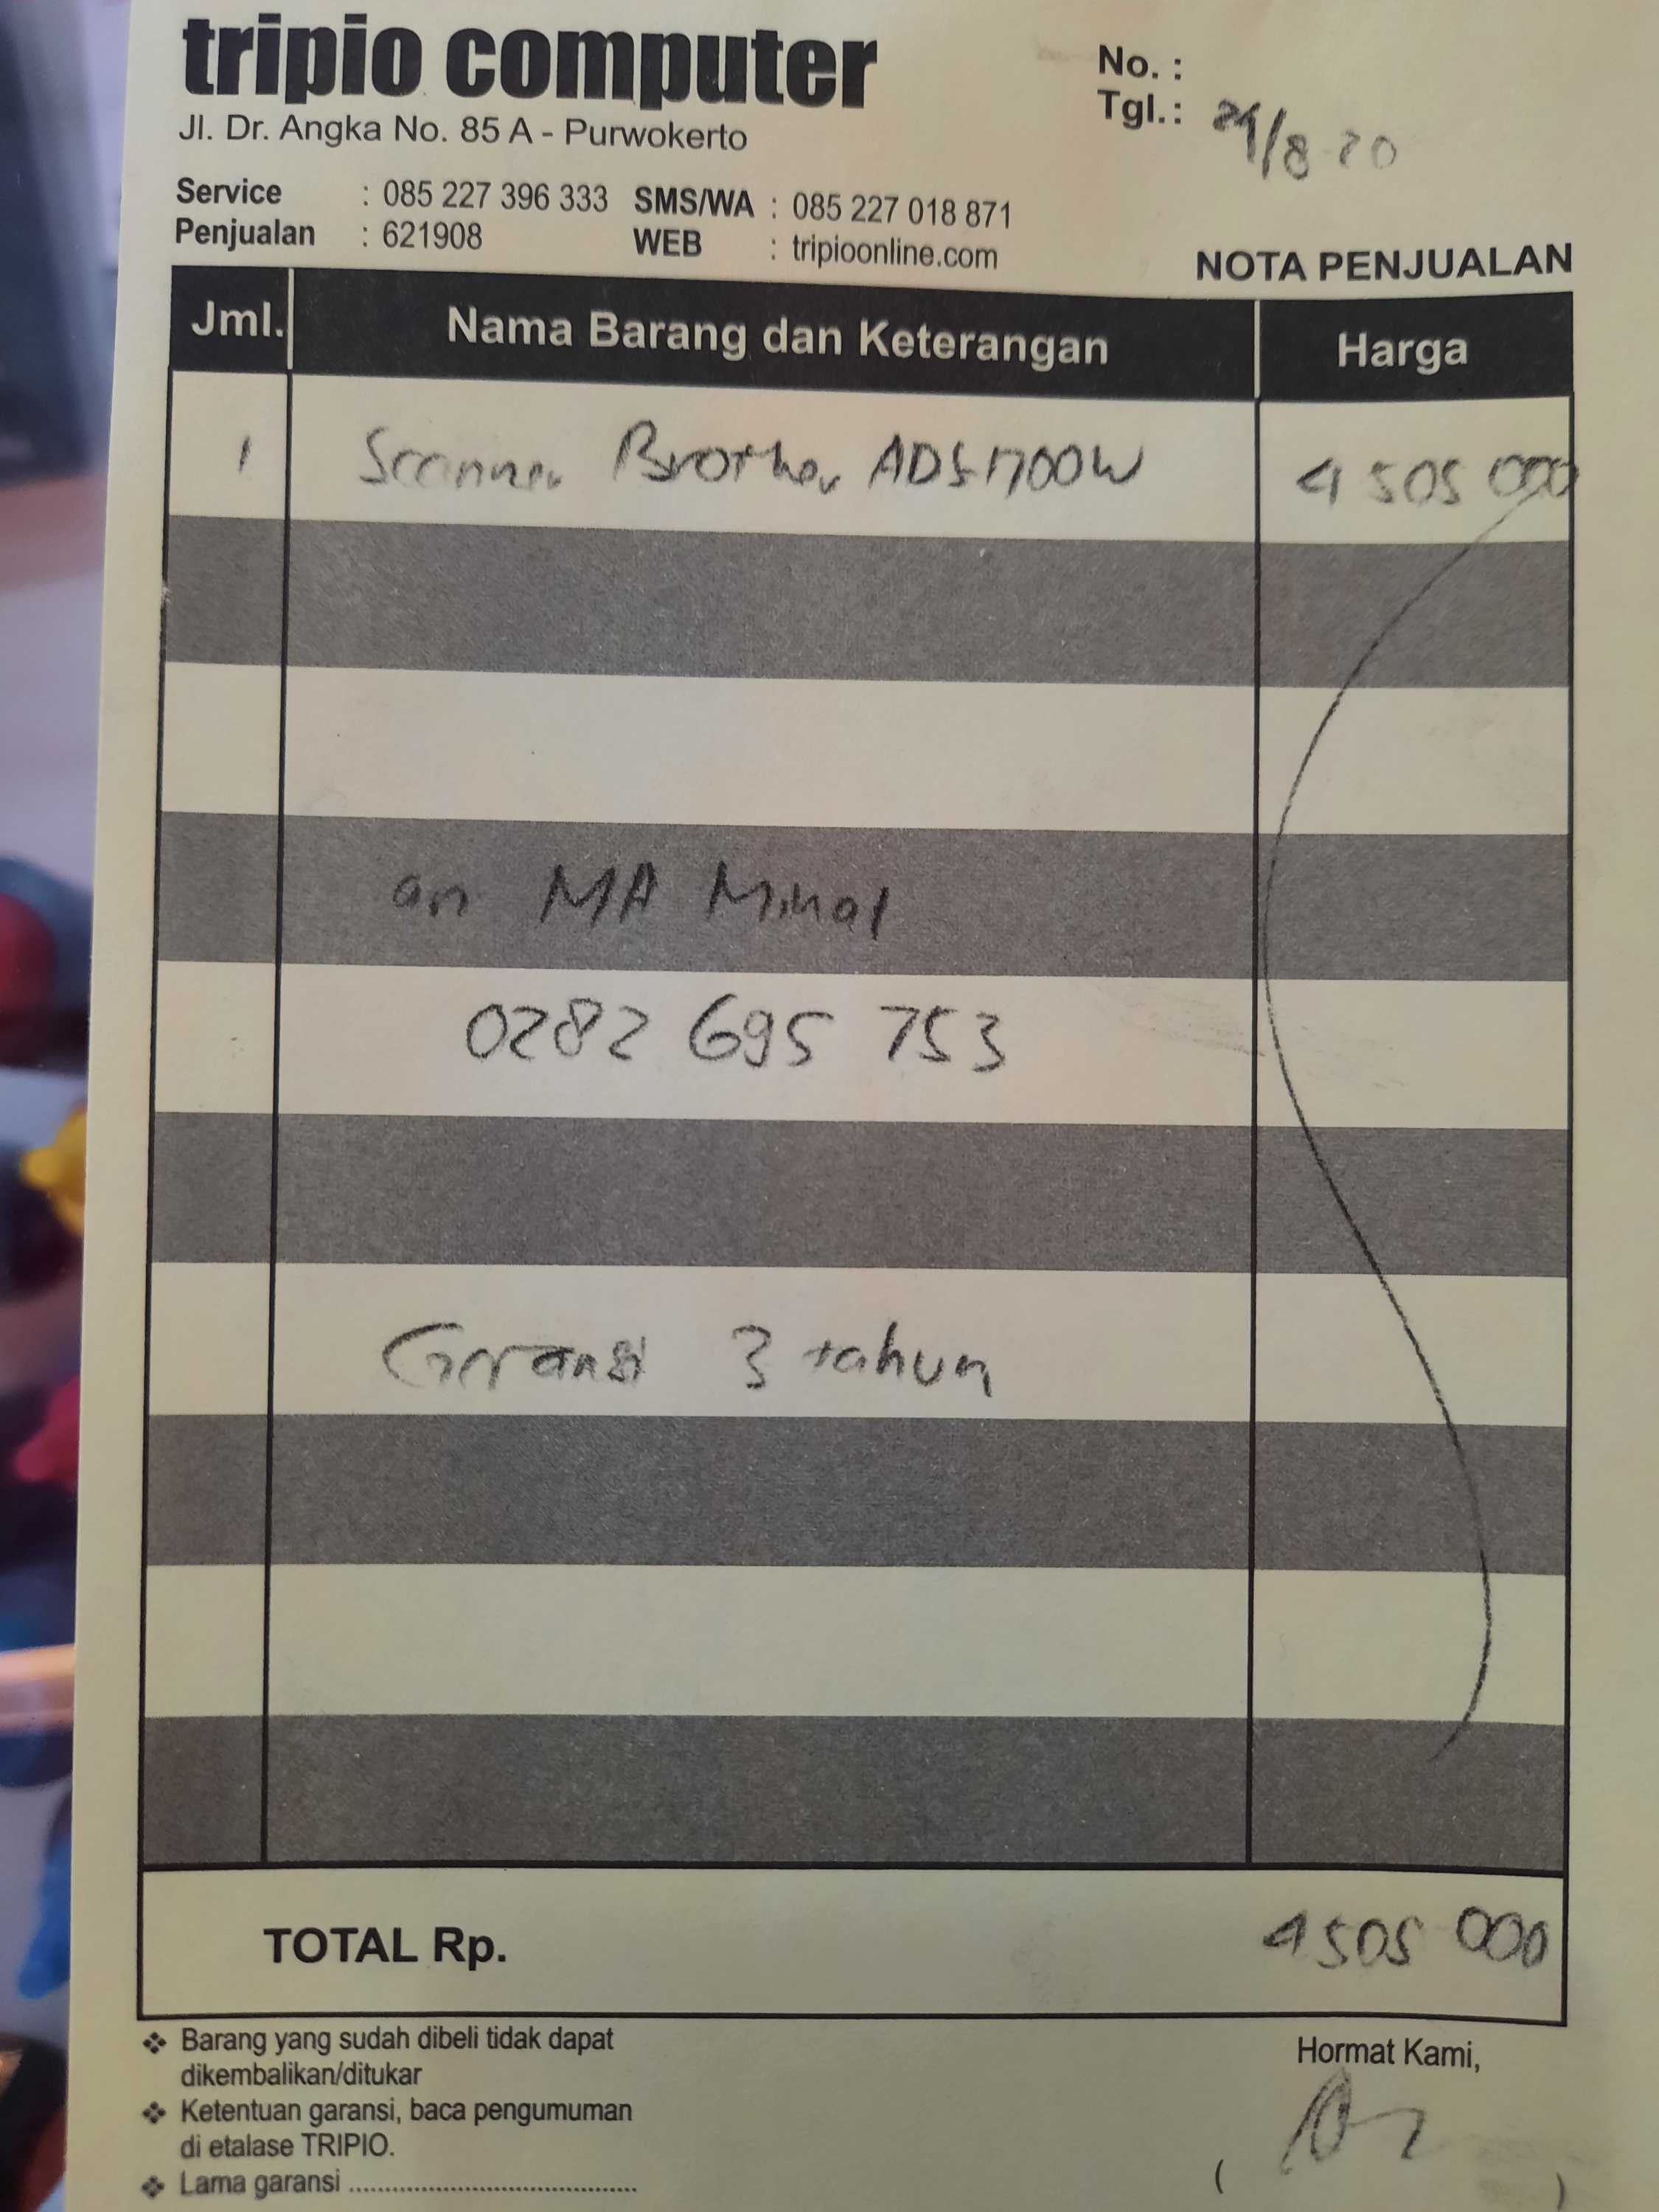 tripio computer
Jl. Dr. Angka No. 85 A - Purwokerto
No. :
Tgl.: /8 20
Service : 085 227 396 333 SMS/WA : 085 227 018 871
Penjualan : 621908 WEB : tripioonline.com
NOTA PENJUALAN
Jml. Nama Barang dan Keterangan Harga
1 Scanner Brother ADS-1700W 4 505 000
an MA Minat
0282 695 753
Garansi 3 tahun
TOTAL Rp. 4 505 000
❖ Barang yang sudah dibeli tidak dapat
dikembalikan/ditukar
❖ Ketentuan garansi, baca pengumuman
di etalase TRIPIO.
❖ Lama garansi ........................................
Hormat Kami,
( )